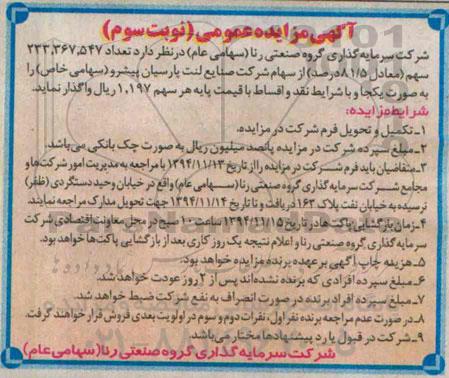 آگهی مزایده عمومی (نوبت سوم)
شرکت سرمایه گذاری گروه صنعتی رنا (سهامی عام) در نظر دارد تعداد ۲۳۳,۳۶۷,۵۴۷
سهم (معادل ۸۱/۵ درصد) از سهام شرکت صنایع لنت پارسیان پیشرو (سهامی خاص) را
به صورت یکجا و با شرایط نقد و اقساط با قیمت پایه هر سهم ۱,۱۹۷ ریال واگذار نماید.
شرایط مزایده:
۱- تکمیل و تحویل فرم شرکت در مزایده.
۲- مبلغ سپرده شرکت در مزایده پانصد میلیون ریال به صورت چک بانکی می‌باشد.
۳- متقاضیان باید فرم شرکت در مزایده را از تاریخ ۱۳۹۴/۱۱/۱۳ با مراجعه به مدیریت امور شرکت‌ها و
مجامع شرکت سرمایه گذاری گروه صنعتی رنا (سهامی عام) واقع در خیابان وحید دستگردی (ظفر)
نرسیده به خیابان نفت پلاک ۱۶۳ دریافت و تا تاریخ ۱۳۹۴/۱۱/۱۴ جهت تحویل مدارک مراجعه نمایند.
۴- زمان بازگشایی پاکت ها در تاریخ ۱۳۹۴/۱۱/۱۵ ساعت ۱۰ صبح در محل معاونت اقتصادی شرکت
سرمایه گذاری گروه صنعتی رنا و اعلام نتیجه یک روز کاری بعد از بازگشایی پاکت‌ها خواهد بود.
۵- هزینه چاپ آگهی بر عهده برنده مزایده خواهد بود.
۶- مبلغ سپرده افرادی که برنده نشده‌اند پس از ۲ روز عودت خواهد شد.
۷- مبلغ سپرده افراد برنده در صورت انصراف به نفع شرکت ضبط خواهد شد.
۸- در صورت عدم مراجعه برنده نفر اول، نفرات دوم و سوم در اولویت بعدی فروش قرار خواهند گرفت.
۹- شرکت در قبول یا رد پیشنهادها مختار می‌باشد.
شرکت سرمایه گذاری گروه صنعتی رنا (سهامی عام)